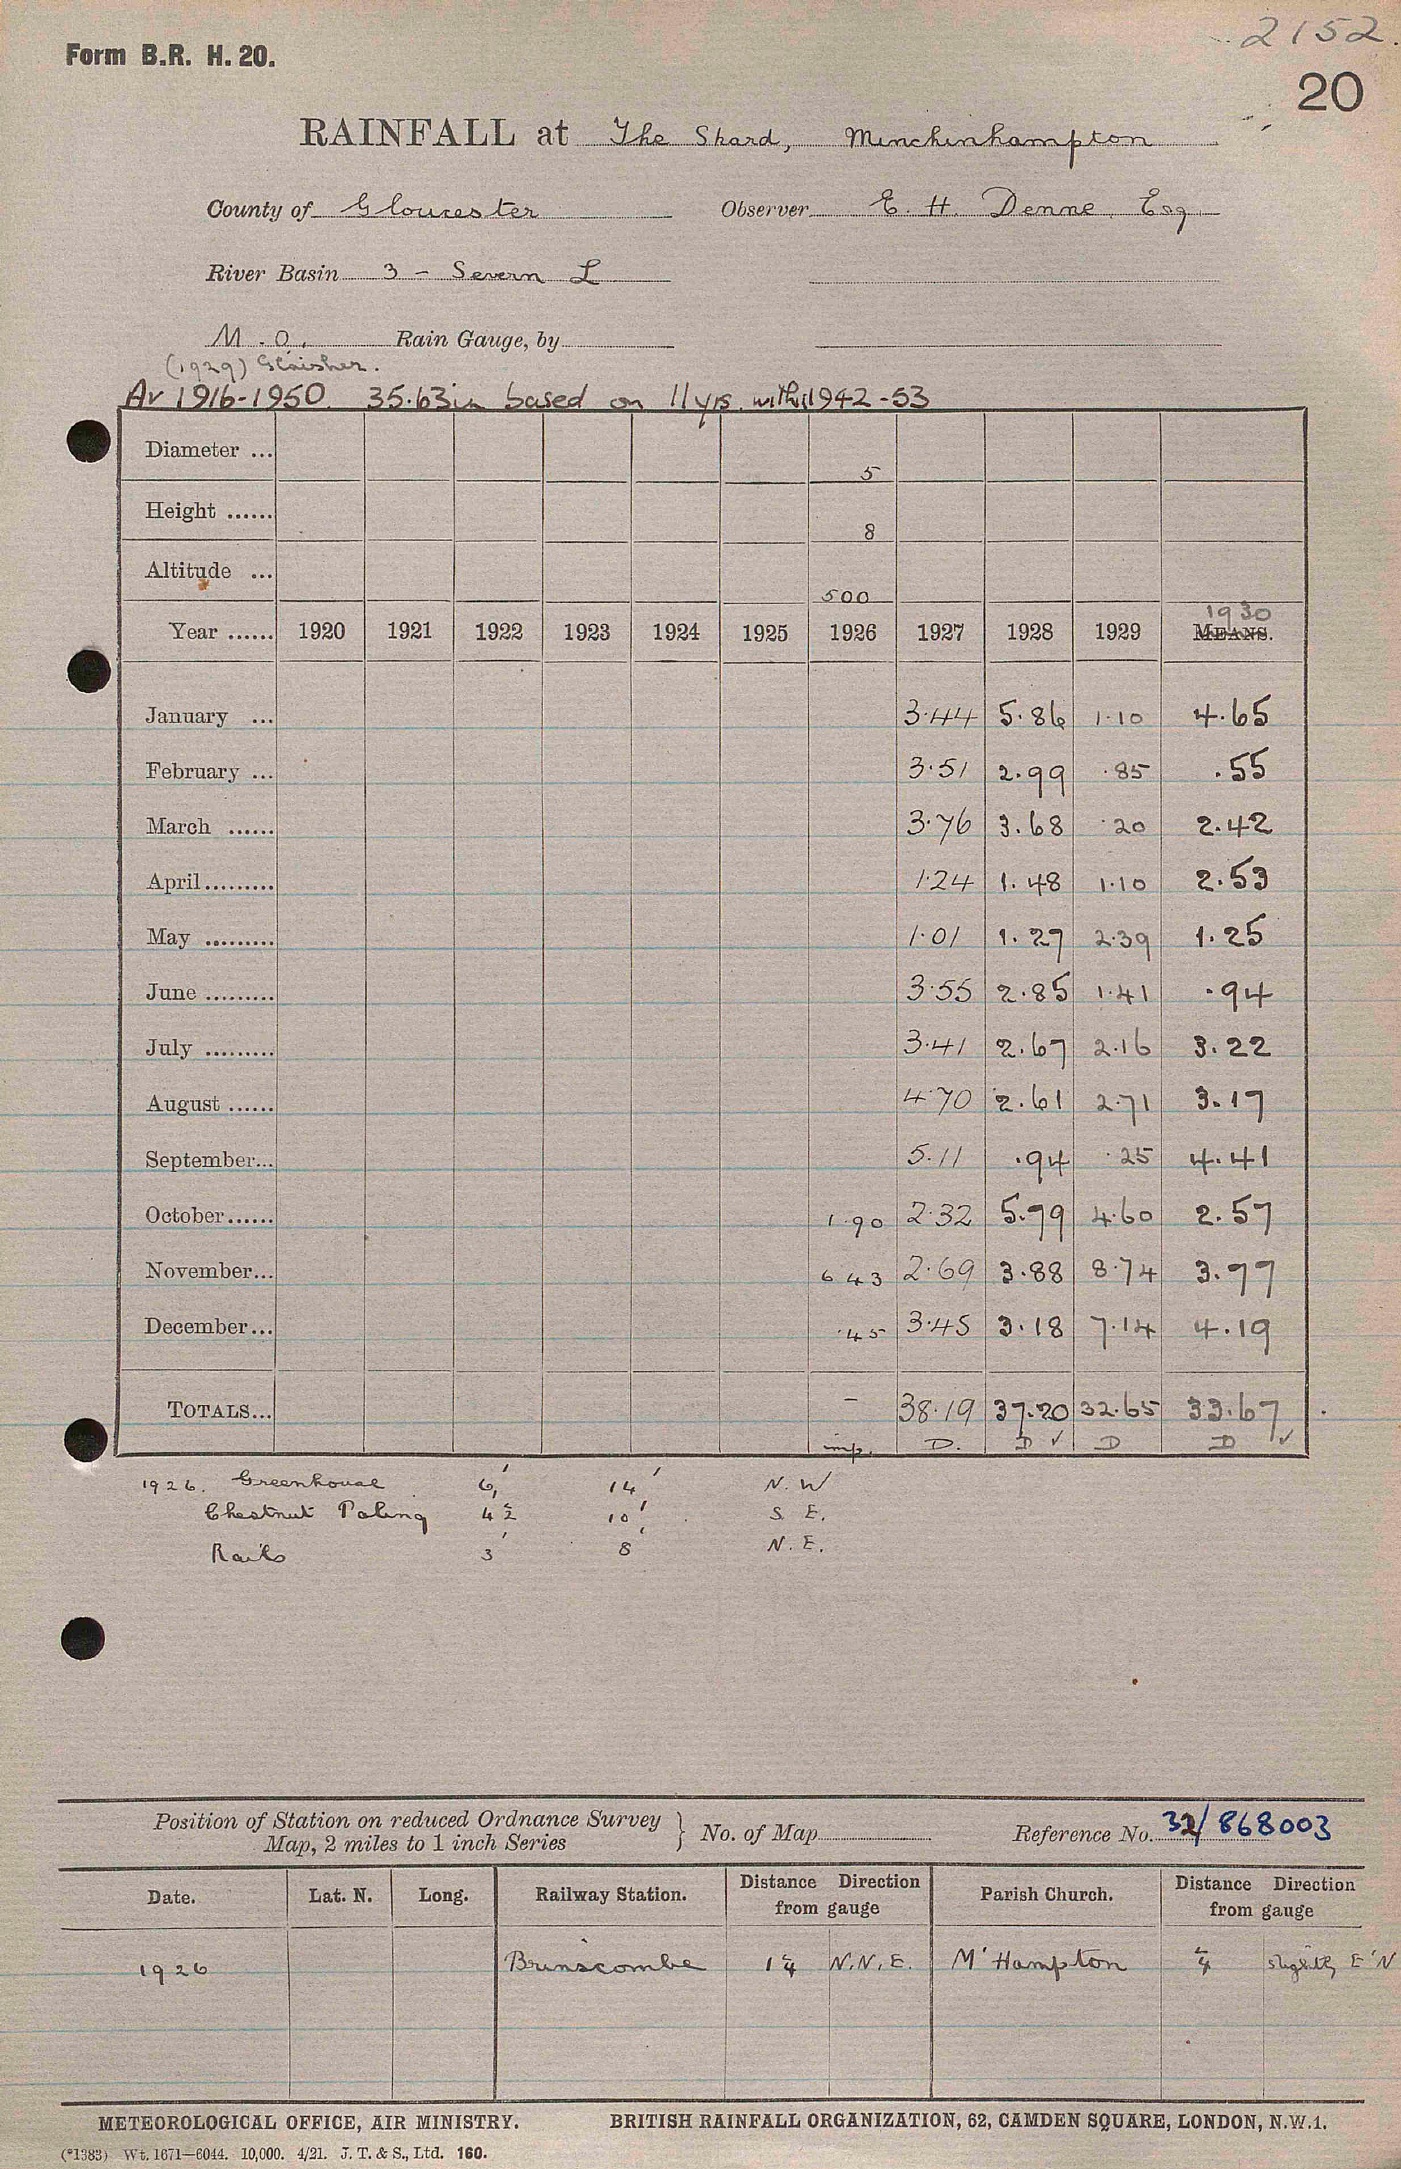 2152.
Form B.R. H. 20.
20
RAINFALL at The Shard, Minchinhampton
County of Gloucester Observer E. H. Denne Esq.
River Basin 3 - Severn L
M.O. Rain Gauge, by
(1929) Glaisher.
Av 1916-1950 35.63in based on 11 yrs within 1942-53
Diameter ... 5
Height ...... 8
Altitude ... 500
1930
Year ...... 1920 1921 1922 1923 1924 1925 1926 1927 1928 1929 MEANS.
January ... 3.44 5.86 1.10 4.65
February ... 3.51 2.99 .85 .55
March ...... 3.76 3.68 .20 2.42
April......... 1.24 1.48 1.10 2.53
May ......... 1.01 1.27 2.39 1.25
June ......... 3.55 2.85 1.41 .94
July ......... 3.41 2.67 2.16 3.22
August ...... 4.70 2.61 2.71 3.17
September... 5.11 .94 .25 4.41
October...... 1.90 2.32 5.79 4.60 2.57
November... 6 43 2.69 3.88 8.74 3.77
December... .45 3.45 3.18 7.14 4.19
TOTALS... - 38.19 37.20 32.65 33.67
imp. D. D ✓ D D ✓
1926. Greenhouse 6' 14' N.W
Chestnut Paling 4½ 10' S E.
Rails 3' 8' N.E.
Position of Station on reduced Ordnance Survey
Map, 2 miles to 1 inch Series } No. of Map Reference No. 32/868003
Date. Lat. N. Long. Railway Station. Distance Direction from gauge Parish Church. Distance Direction from gauge
1926 Brimscombe 1¼ N.N.E. M'Hampton ¼ slightly E'N
METEOROLOGICAL OFFICE, AIR MINISTRY. BRITISH RAINFALL ORGANIZATION, 62, CAMDEN SQUARE, LONDON, N.W.1.
(*1383) Wt. 1671—6044. 10,000. 4/21. J. T. & S., Ltd. 160.